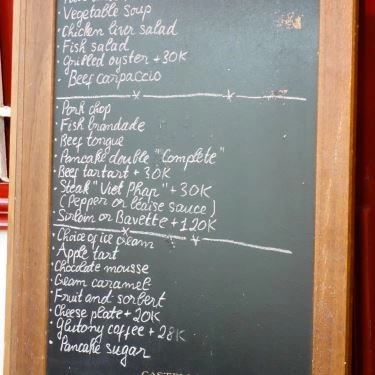 · Vegetable Soup
· Chicken liver salad
· Fish salad
· Grilled oyster +30K
· Beef carpaccio
· Pork chop
· Fish brandade
· Beef tongue
· Pancake double "Complete"
· Beef tartart + 30K
· Steak "Viet Phap" + 30K
(Pepper or blaise sauce)
· Sirloin or Bavette + 120K
· Choice of ice cream
· Apple tart
· Chocolate mousse
· Cream caramel
· Fruit and sorbert
· Cheese plate + 20K
· Glutony coffee + 28K
· Pancake sugar